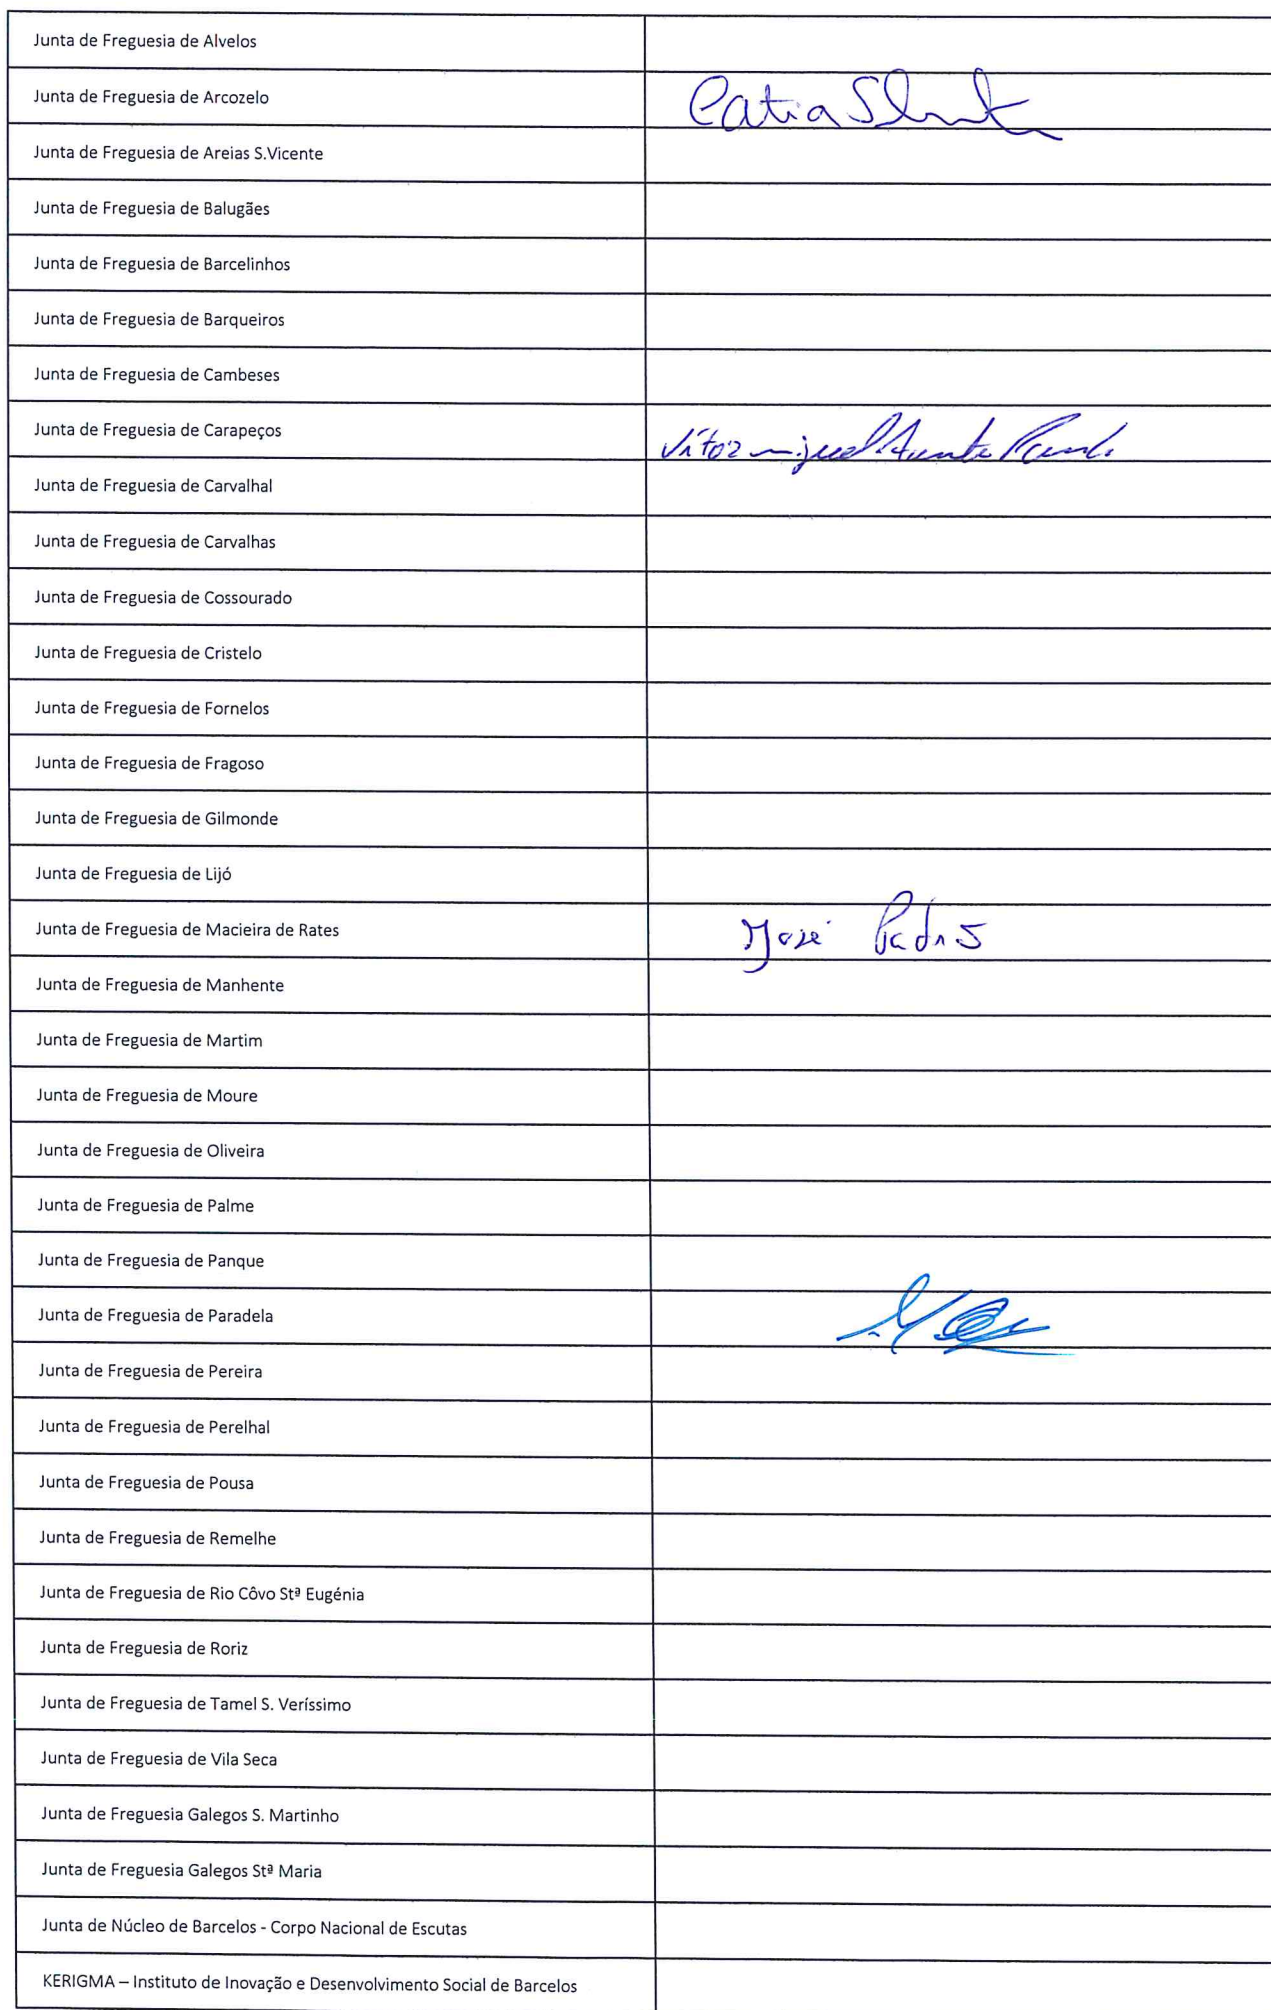 Junta de Freguesia de Alvelos
Junta de Freguesia de Arcozelo
Catia
Junta de Freguesia de Areias S.Vicente
Junta de Freguesia de Balugães
Junta de Freguesia de Barcelinhos
Junta de Freguesia de Barqueiros
Junta de Freguesia de Cambeses
Junta de Freguesia de Carapeços
Vítor miguel
Junta de Freguesia de Carvalhal
Junta de Freguesia de Carvalhas
Junta de Freguesia de Cossourado
Junta de Freguesia de Cristelo
Junta de Freguesia de Fornelos
Junta de Freguesia de Fragoso
Junta de Freguesia de Gilmonde
Junta de Freguesia de Lijó
Junta de Freguesia de Macieira de Rates
José
Junta de Freguesia de Manhente
Junta de Freguesia de Martim
Junta de Freguesia de Moure
Junta de Freguesia de Oliveira
Junta de Freguesia de Palme
Junta de Freguesia de Panque
Junta de Freguesia de Paradela
Junta de Freguesia de Pereira
Junta de Freguesia de Perelhal
Junta de Freguesia de Pousa
Junta de Freguesia de Remelhe
Junta de Freguesia de Rio Côvo Stª Eugénia
Junta de Freguesia de Roriz
Junta de Freguesia de Tamel S. Veríssimo
Junta de Freguesia de Vila Seca
Junta de Freguesia Galegos S. Martinho
Junta de Freguesia Galegos Stª Maria
Junta de Núcleo de Barcelos - Corpo Nacional de Escutas
KERIGMA – Instituto de Inovação e Desenvolvimento Social de Barcelos